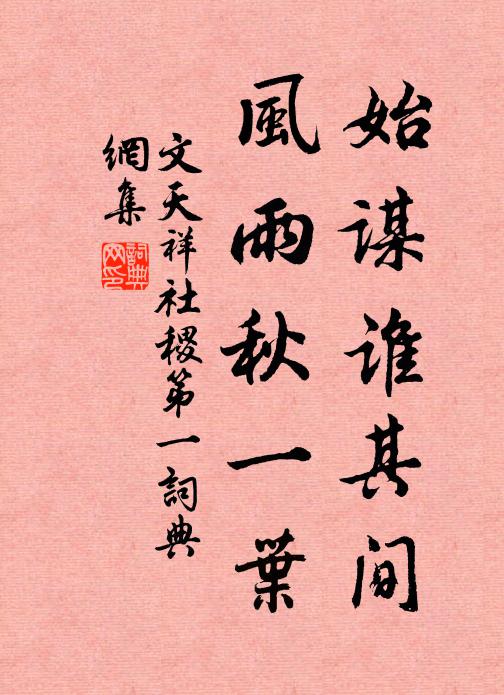 始謀誰其間
風雨秋一葉
文天祥社稷第一詞典
網集
詞典网印